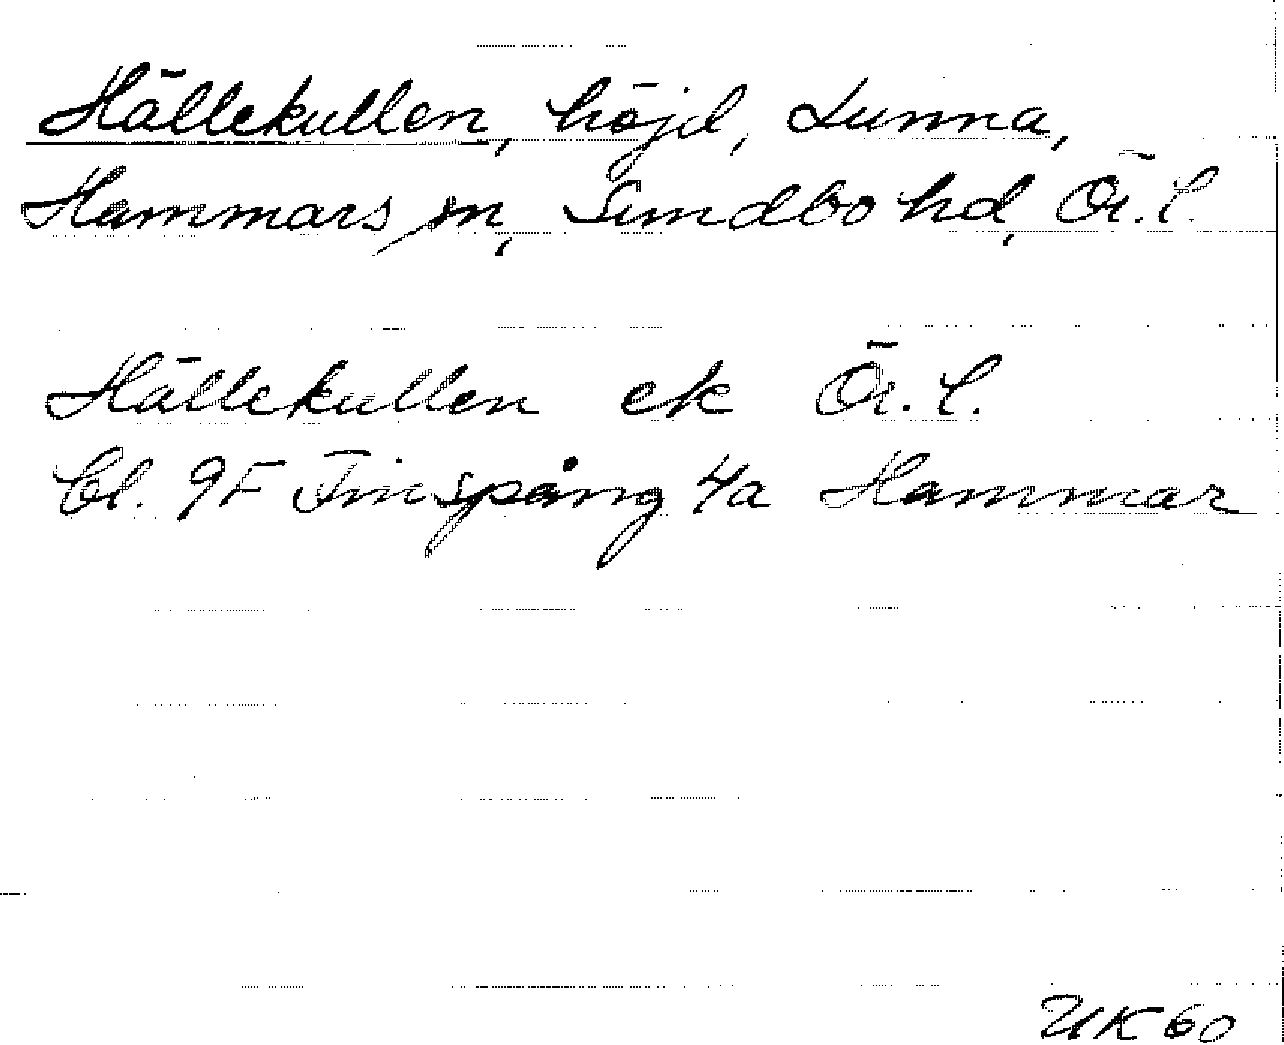 Hällekullen, höjd, Lunna,
Hammars sn, Sundbo hd, Ör. l.
Hällekullen ek Ör. l.
Bl. 9F Finspång 4a Hammar
UK 60